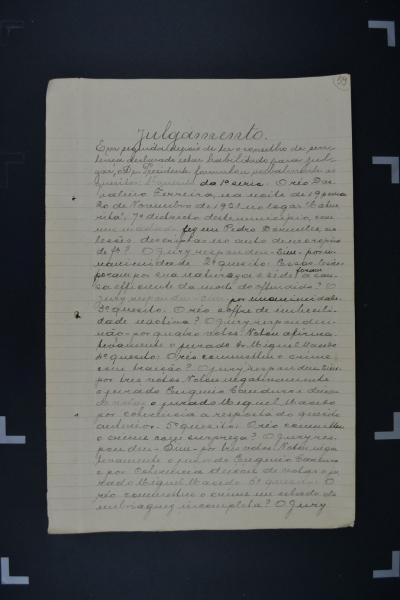 59
Julgamento.
Em seguida depois de ter o conselho de sen
tença declarado estar habilitado para jul
gar, o Dr. Presidente formulou verbalmente os
quesitos: 1º quesito da 1ª serie. O réo
Ferreira, na noite de 19 para
20 de Novembro de 1921 no lugar
7º districto deste municipio, com
um machado fez em Pedro as
lesões descriptas no auto de necropsia
de f? O Jury respondeu - Sim - por u-
nanimidade. 2º quesito. Essas lesões
foram por sua natureza e séde foram a cau-
sa efficiente da morte do offendido? O
Jury respondeu - Sim - por unanimidade.
3º quesito. O réo soffre de imbecili-
dade nativa? O Jury respondeu
não - por quatro votos. Votou afirma
tivamente o jurado Miguel Macedo
4º quesito: O réo commetteu o crime
com traição? O Jury respondeu Sim -
por tres votos. Votou negativamente
o jurado Eugenio
o jurado Miguel Macedo
por coherencia a resposta do quesito
anterior. 5º quesito: O réo commetteu
o crime com surpreza? O Jury res-
pondeu - Sim - por tres votos. Votou nega
tivamente o jurado Eugenio
e por coherencia deixou de votar o ju
rado Miguel Macedo. 6º quesito: O
réo commetteu o crime em estado de
embriaguez incompleta? O Jury